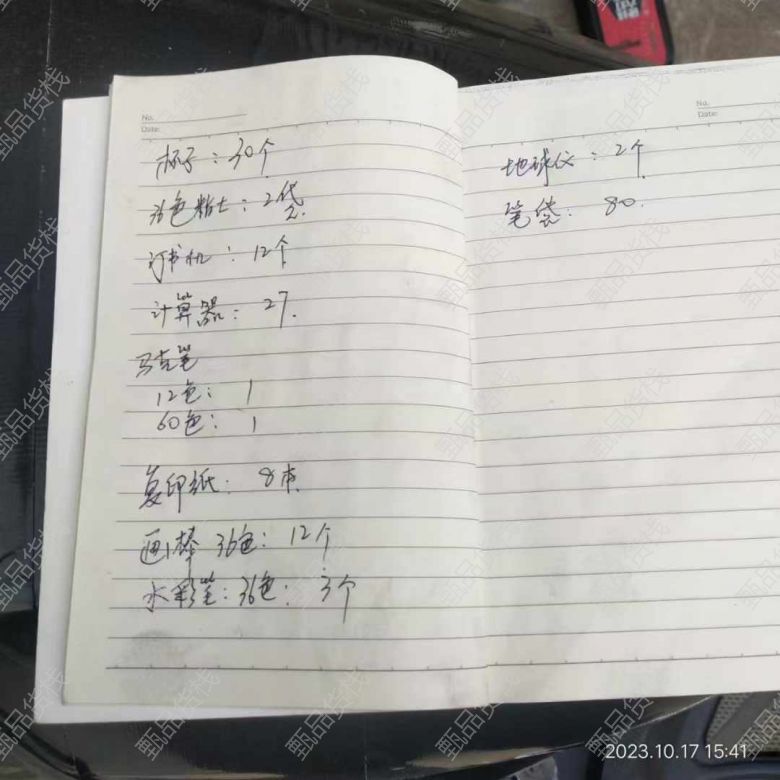 No.
Date:
杯子：30个
彩色粘土：2袋
订书机：12个
计算器：27.
马克笔
12色：1
60色：1
复印纸：8本
画棒 36色：12个
水彩笔：36色：3个
No.
Date:
地球仪：2个
笔袋：80.
甄品货栈
2023.10.17 15:41